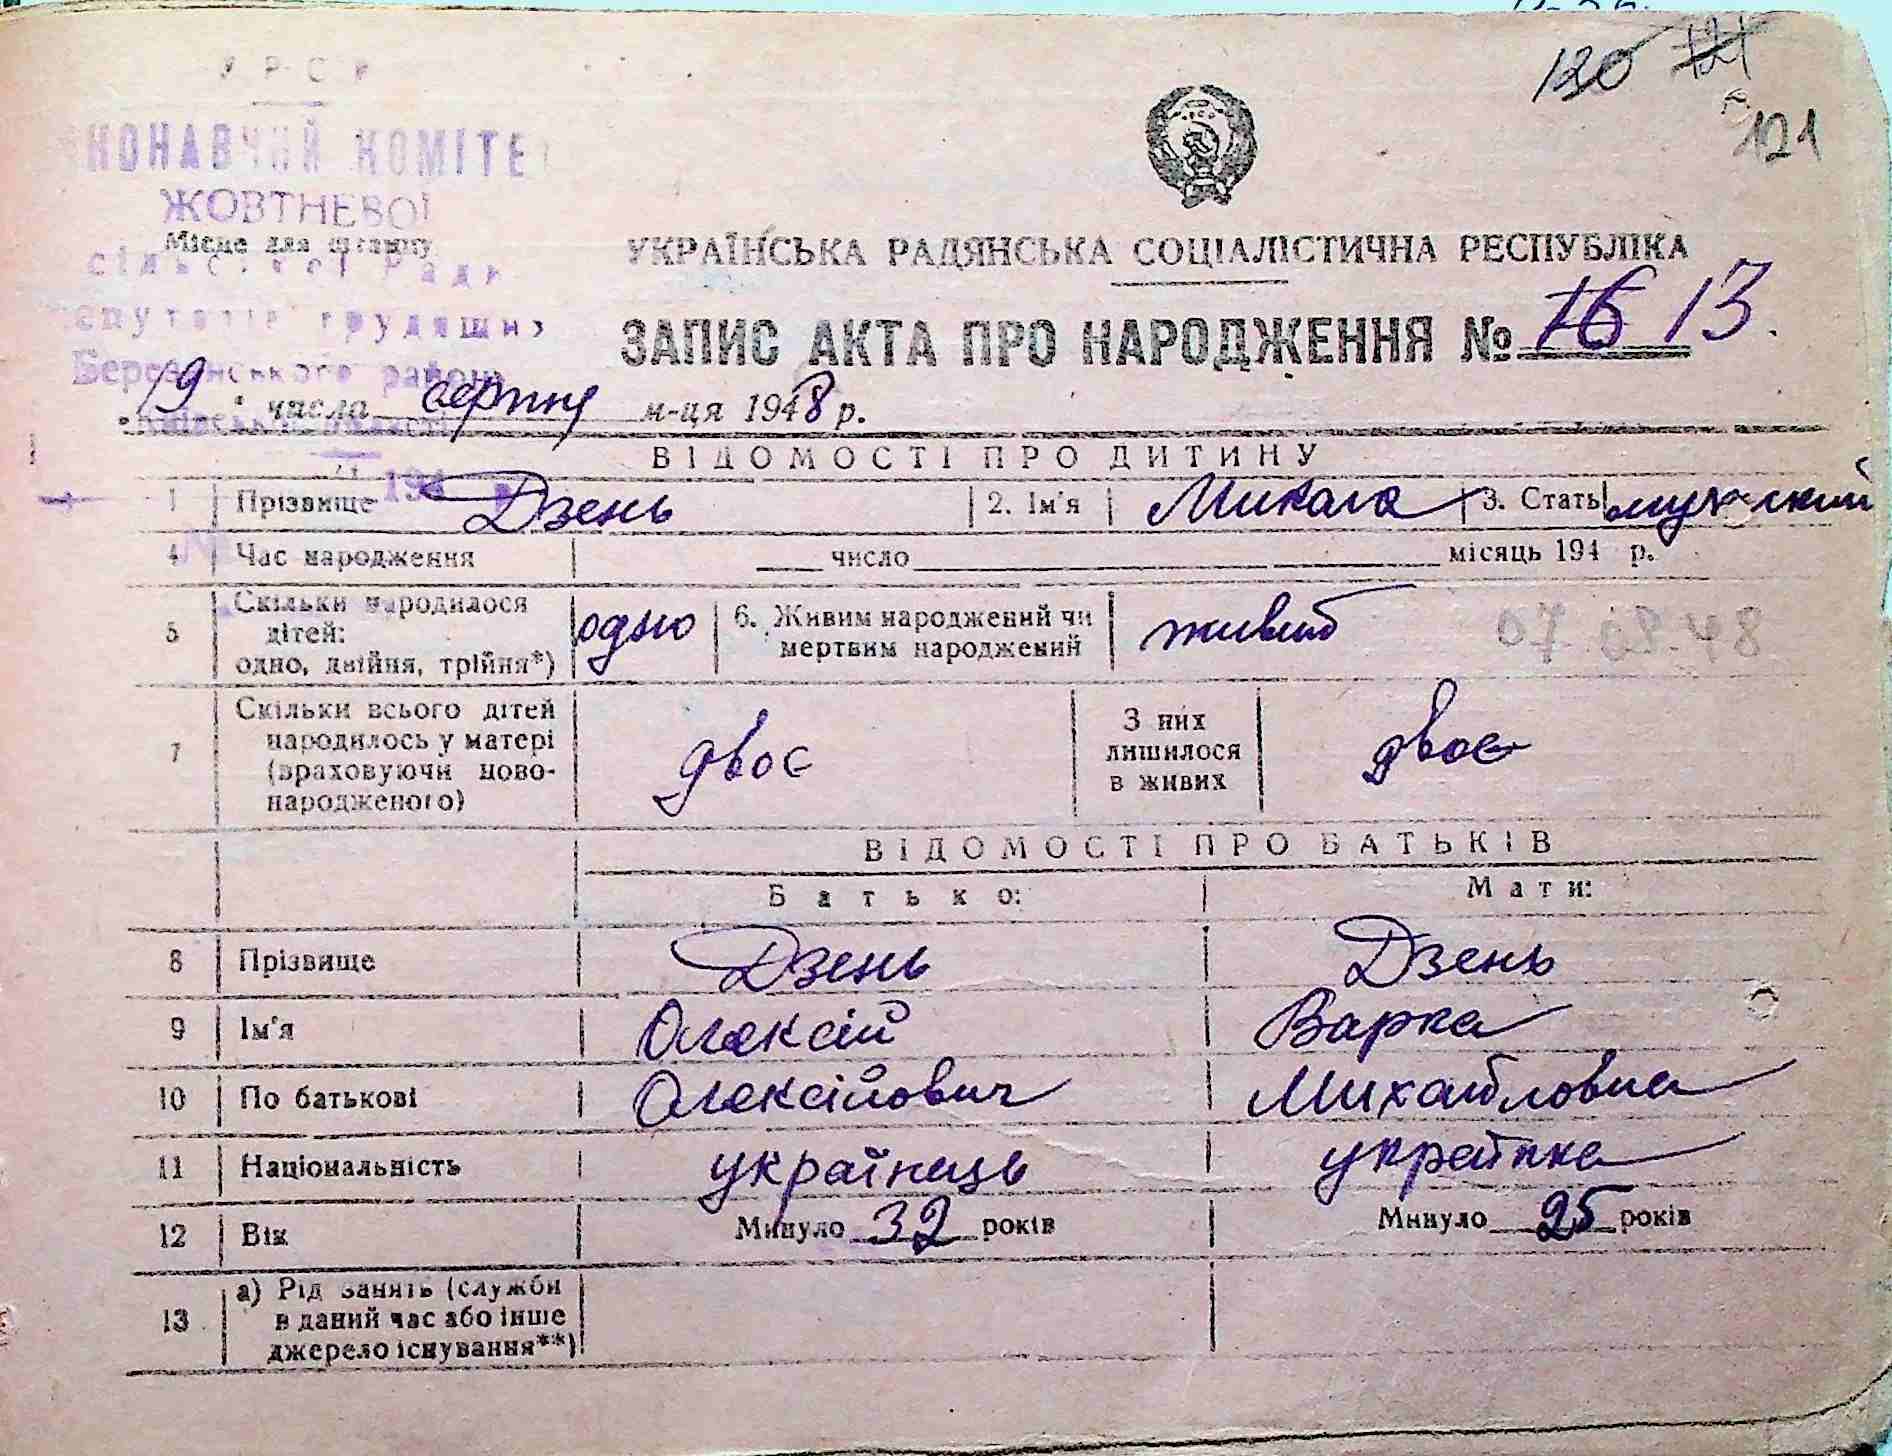 120 121
121
УРСР
КОНАВЧИЙ КОМІТЕ
ЖОВТНЕВОЇ
Місце для штампу
сільської Ради
депутатів трудящих
Березанського району
Київської області
194
УКРАЇНСЬКА РАДЯНСЬКА СОЦІАЛІСТИЧНА РЕСПУБЛІКА
ЗАПИС АКТА ПРО НАРОДЖЕННЯ № 16 13.
"19" числа серпня м-ця 1948 р.
ВІДОМОСТІ ПРО ДИТИНУ
1 Прізвище Дзень 2. Ім'я Микола 3. Стать мужский
4 Час народження число місяць 194 р.
5 Скільки народилося дітей: одно, двійня, трійня*) одно 6. Живим народжений чи мертвим народжений живий
7 Скільки всього дітей народилось у матері (враховуючи новонародженого) двоє З них лишилося в живих двоє
ВІДОМОСТІ ПРО БАТЬКІВ
Батько: Мати:
8 Прізвище Дзень Дзень
9 Ім'я Олексій Варка
10 По батькові Олексійович Михайловна
11 Національність українець українка
12 Вік Минуло 32 років Минуло 25 років
13 а) Рід занять (служби в даний час або інше джерело існування**)